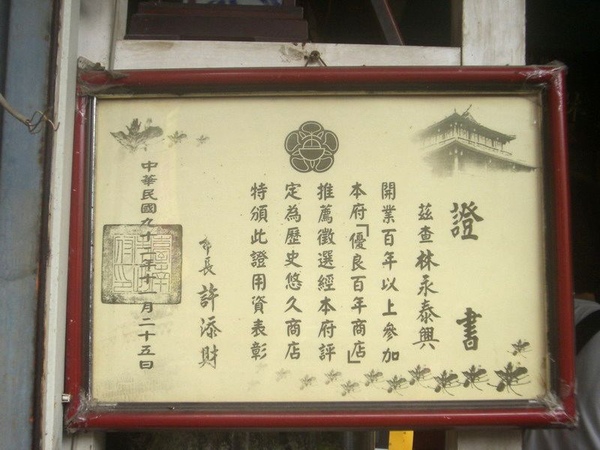 證書
茲查林永泰興
開業百年以上參加
本府「優良百年商店」
推薦徵選經本府評
定為歷史悠久商店
特頒此證用資表彰
市長 許添財
中華民國九十二年十月二十五日